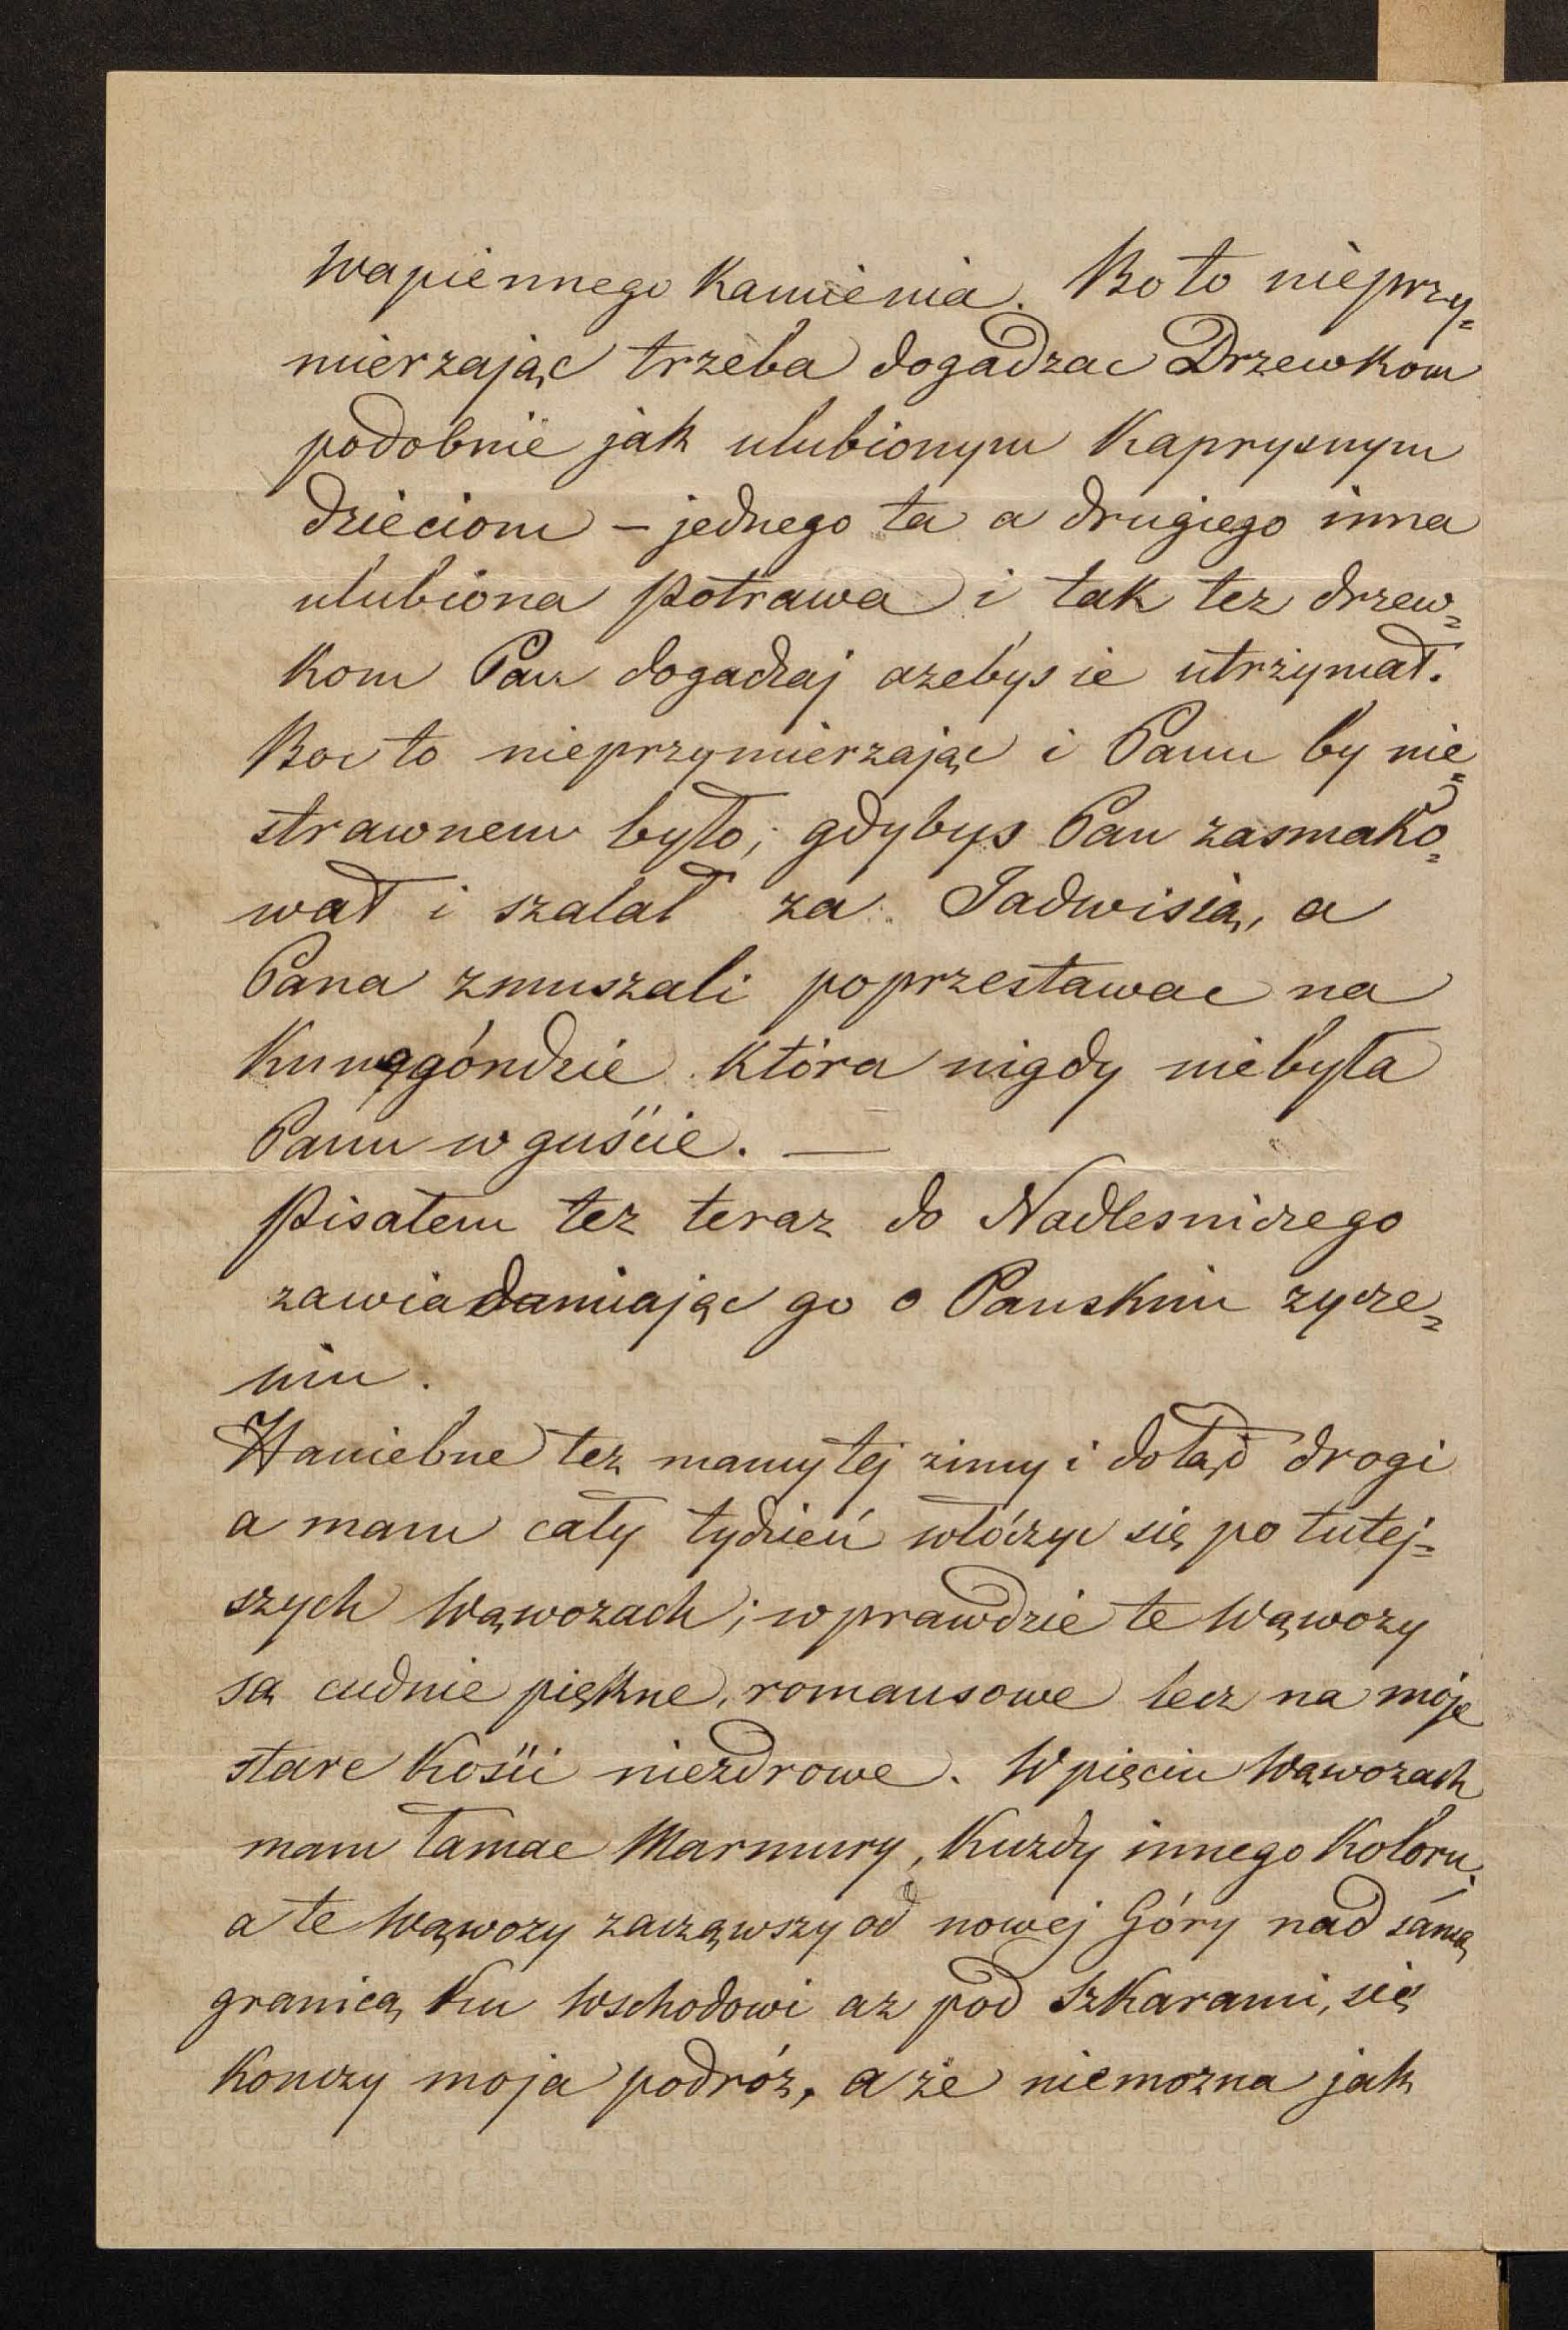 Wapiennego Kamienia. Bo to nieprzy=
mierzając trzeba dogadzac Drzewkom
podobnie jak ulubionym Kaprysnym
dzieciom – jednego ta a drugiego inna
ulubiona potrawa i tak tez drzew=
kom Pan dogadzaj azebys ie utrzymał.
Boc to nieprzymierzając i Panu by nie=
strawnem było, gdybys Pan zasmako=
wał i szalał za Jadwisią, a
Pana zmuszali poprzestawac na
Kunęgóndzie która nigdy niebyła
Panu w guście. —
Pisałem tez teraz do Nadlesniczego
zawiadamiając go o Panskim zycze=
niu.
Haniebne tez mamy tej zimy i dotąd drogi
a mam cały tydzień włóczyc się po tutej=
szych Wąwozach; wprawdzie te Wąwozy
są cudnie piękne, romansowe lecz na moje
stare Kości niezdrowe. W pięciu Wąwozach
mam łamac Marmury, Kuzdy innego Koloru,
a te Wąwozy zacząwszy od nowej Góry nad samą
granicą Ku Wschodowi az pod Szkarami, się
Konczy moja podróz, a że niemozna jak